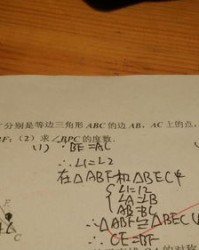 分别是等边三角形 ABC 的边 AB，AC 上的点，
(2) 求∠BPC 的度数．
(1) ∵ BE=AC
∴ ∠1=∠2
在△ABF和△BEC中
∠1=∠2
∠A=∠B
AB=BC
∴ △ABF≌△BEC
∴ CE=BF
C